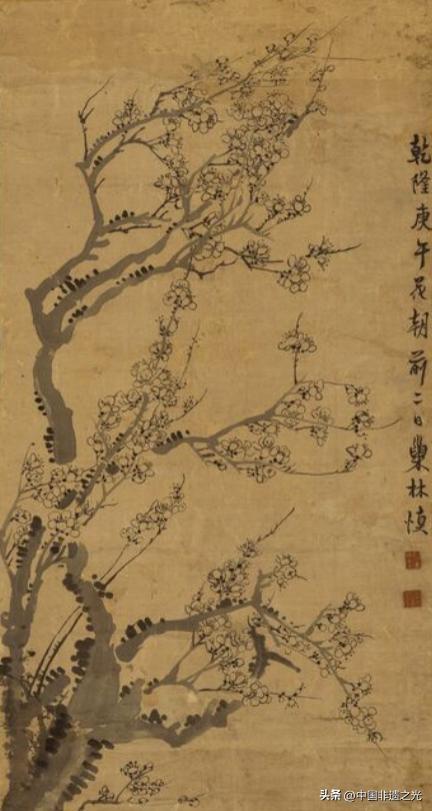 乾隆庚午花朝前二日巢林慎
头条 @中国非遗之光